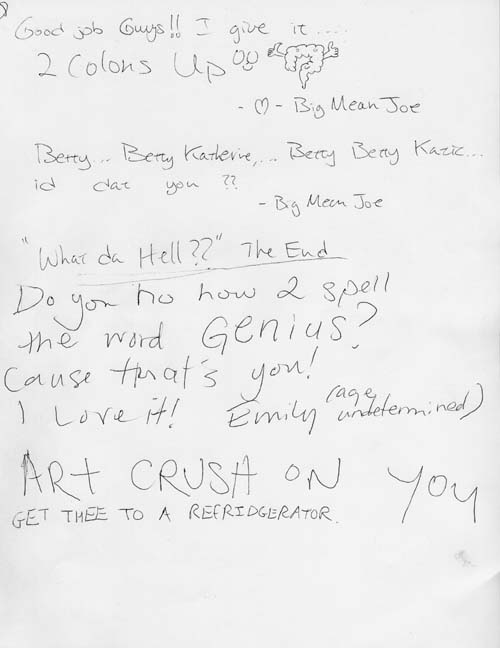 Good job Guys!! I give it .....
2 Colons Up
- ♡ - Big Mean Joe
Betty... Betty Katherine,... Betty Betty Katic...
id dat you ??
- Big Mean Joe
"What da Hell??" The End
Do you no how 2 spell
the word Genius?
Cause that's you!
I Love it! Emily (age undetermined)
ART CRUSH ON YOU
GET THEE TO A REFRIDGERATOR.